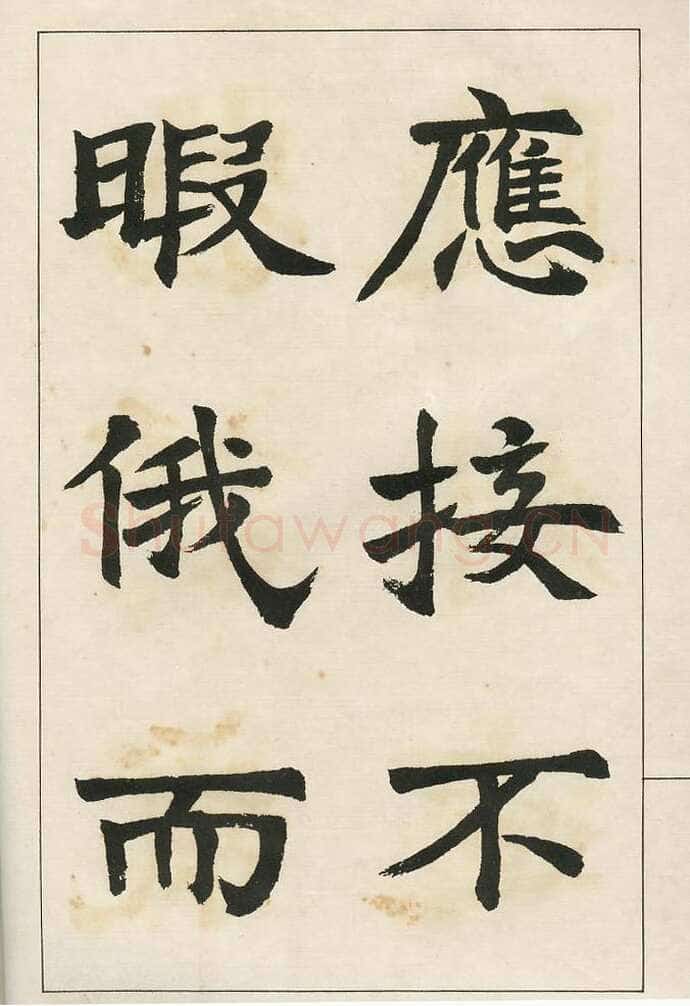 應接不
暇俄而
Shufawang.CN